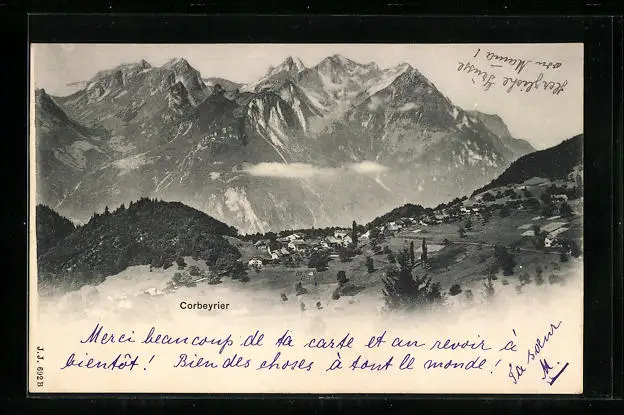 Herzliche Grüsse
von Mama!
Corbeyrier
Merci beaucoup de ta carte et au revoir à
bientôt! Bien des choses à tout le monde!
Ta sœur
M.
J. J. 692B